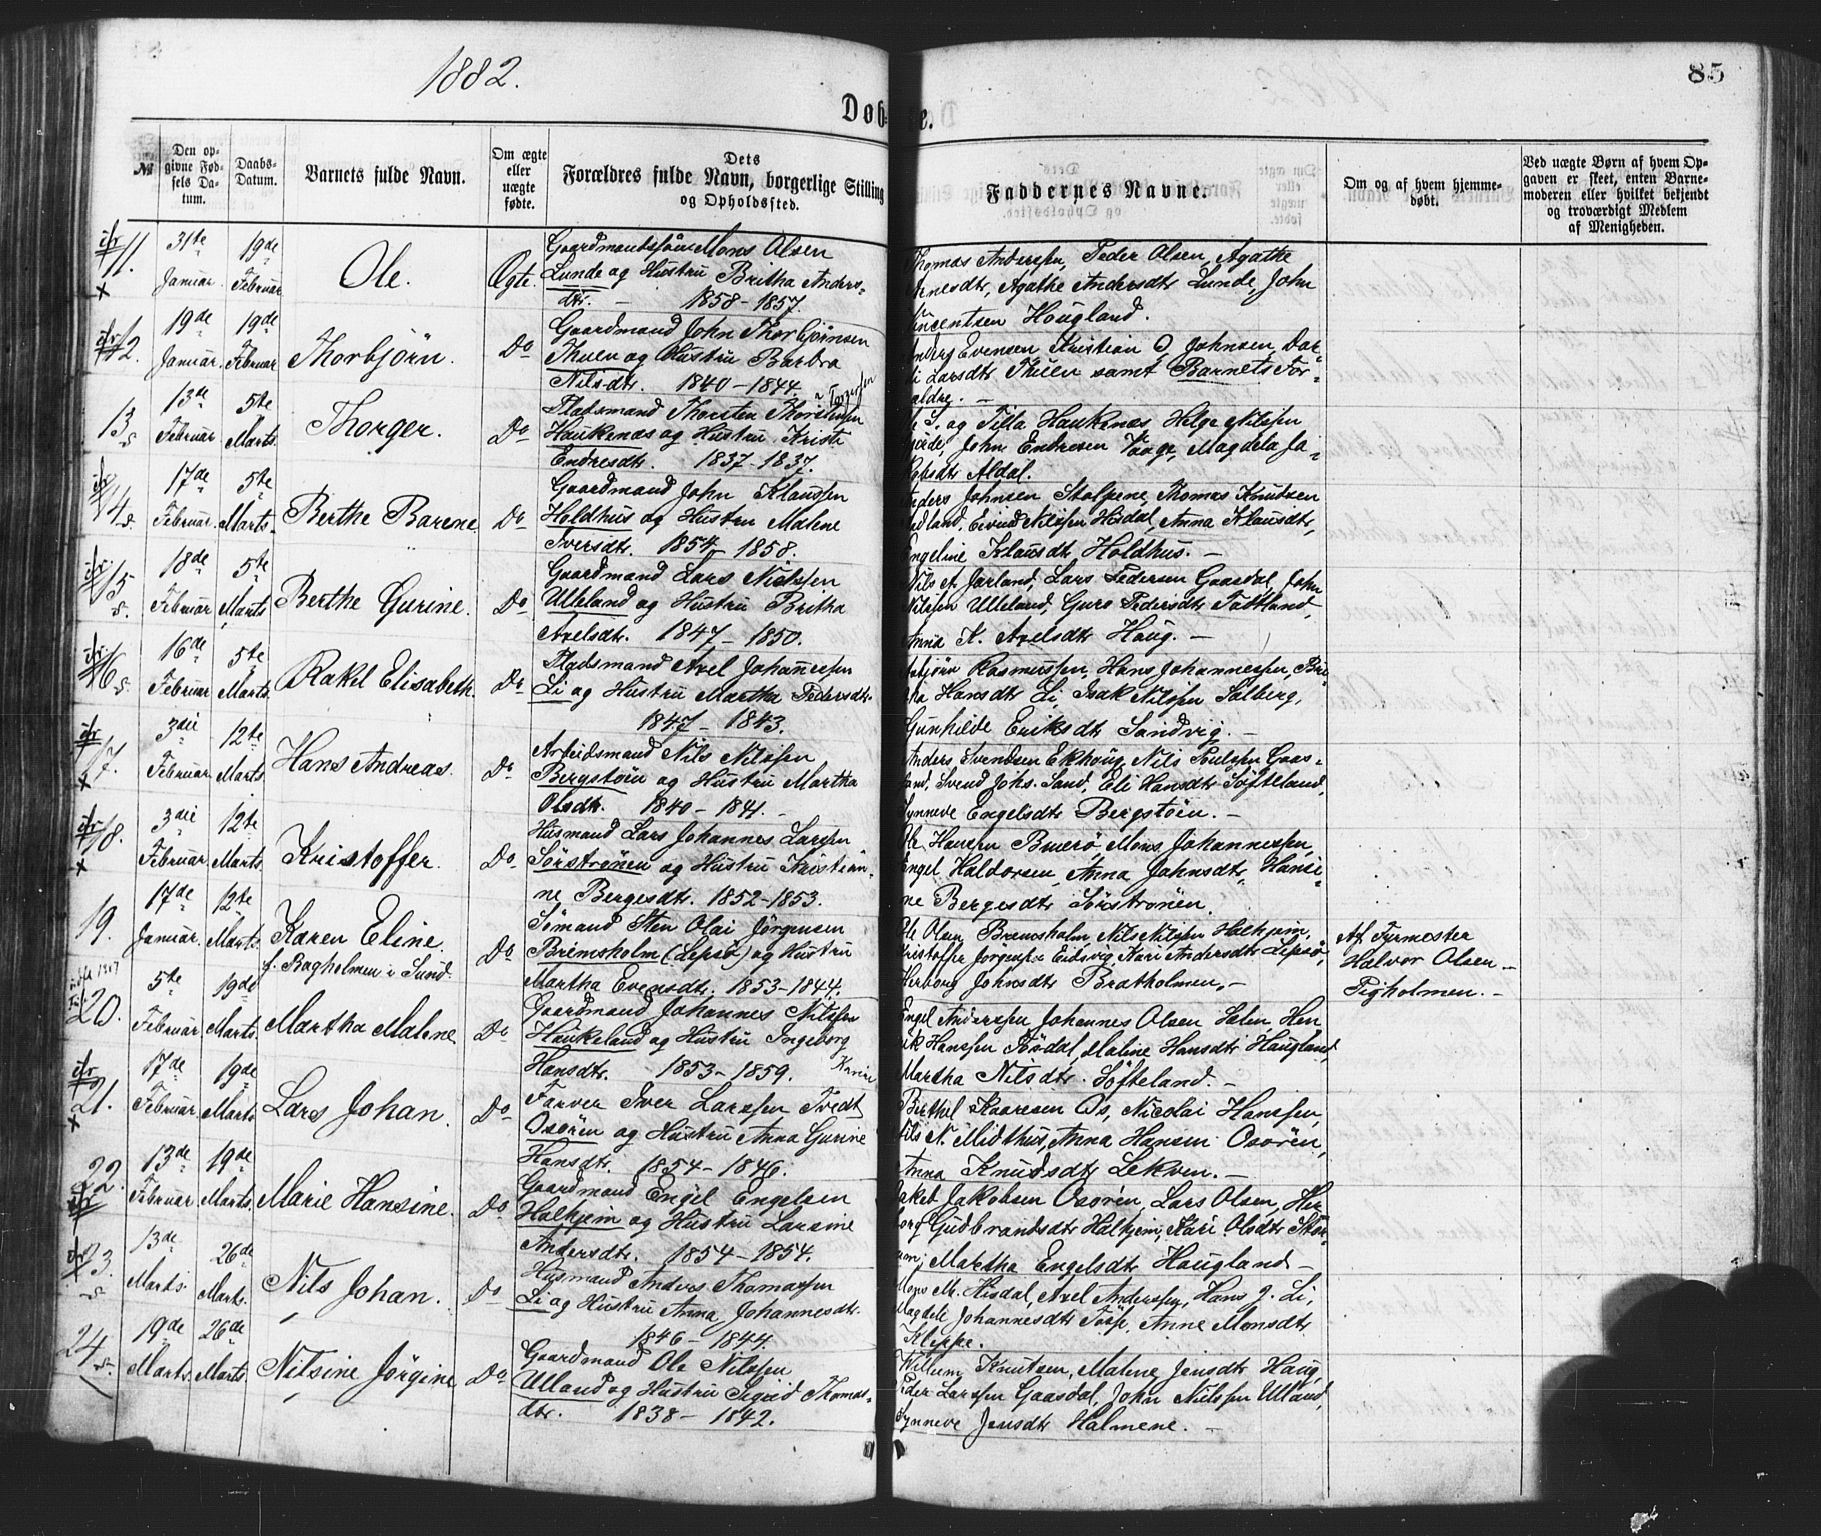 1882.
85
Døbte.
№
Den opgivne Fødsels Datum.
Daabs-Datum.
Barnets fulde Navn.
Om ægte eller uægte fødte.
Dets Forældres fulde Navn, borgerlige Stilling og Opholdssted.
Faddernes Navne.
Om og af hvem hjemmedøbt.
Ved uægte Børn af hvem Opgaven er skeet, enten Barnemoderen eller hvilket bekjendt og troværdigt Medlem af Menigheden.
11. 31te Januar. 19de Februar Ole. Ægte.
Gaardmandssøn Mons Olsen
Lunde og Hustru Britha Anders-
dtr. - 1858 - 1857.
Thomas Anderssen, Peder Olsen, Agathe
Arnesdtr, Agathe Andersdtr Lunde, John
Vincentsen Hougland.
12. 19de Januar. 19de Februar Thorbjørn. Do
Gaardmand John Thorbjørnsen
Thuen og Hustru Barbra
Nilsdtr. 1840 - 1844.
Evensen Kristian O. Johnsen
Larsdtr Thuen samt Barnets For-
ældre. -
13. 13de Februar 5te Marts. Thorger. Do
Pladsmand Thorsten Thorstensen
Haukenæs og Hustru Kristi
Endresdtr. 1837 - 1837.
S. og Tilla Haukenæs Helge Nilssen
John Endresen Vaage, Magdela Ja-
kobsdtr Aldal.
14. 17de Februar. 5te Marts. Berthe Barene Do
Gaardmand John Klaussen
Holdhus og Hustru Malene
Iversdtr. 1854 - 1858.
Anders Johnsen Stolpene, Thomas Knutsen
Eivind Nilssen Hisdal, Anna Klausdtr,
Engeline Klausdtr Holdhus. -
15. 18de Februar 5te Marts Berthe Gurine. Do
Gaardmand Lars Nielssen
Ulleland og Hustru Britha
Axelsdtr. 1847 - 1850.
Nils A. Jarland, Lars Pedersen Gaasdal, John
Nilssen Ulleland, Guro Pedersdtr Toftland,
Anna K. Axelsdtr Haug. -
16. 16de Februar 5te Marts. Rakel Elisabeth. Do
Pladsmand Axel Johannessen
Li og Hustru Martha Pedersdtr.
1847 - 1843.
Asbjørn Rasmussen, Hans Johannessen, Bri-
tha Hansdtr Li, Isak Nilssen Salberg,
Gunhilde Eriksdtr Sandvig. -
17. 3die Februar 12te Marts. Hans Andreas. Do
Arbeidsmand Nils Nilssen
Bergstøen og Hustru Martha
Olsdtr. 1840 - 1841. -
Anders Svendsen Ekhoug, Nils Poulsen Gaas-
land, Svend Johs. Sand, Eli Hansdtr Søfteland,
Synneve Engelsdtr Bergstøen. -
18. 3die Februar 12te Marts. Kristoffer. Do
Husmand Lars Johannes Larssen
Sørstrønen og Hustru Kristian-
ne Bergesdtr. 1852 - 1853.
Ole Hanssen Buerø, Mons Johannessen,
Engel Haldorsen, Anna Johnsdtr, Hansi-
ne Bergesdtr Sørstrønen.
19. 17de Januar. 12te Marts. Karen Eline.
f. Bagholmen i Sund. Do
Sømand Sten Olai Jørgensen
Bremsholm (Lepsø) og Hustru
Martha Evensdtr. 1853 - 1844.
Ole Olsen Bremsholm, Nils Nilssen Halhjem,
Kristoffer Jørgensen Eidsvig, Kari Andersdtr Lepsø,
Herborg Johnsdtr Bratholmen. -
Af Fyrmester
Halvor Olsen -
Pigholmen. -
20. 5te Februar 19de Marts. Martha Malene Do
Gaardmand Johannes Nilssen
Haukeland og Hustru Ingeborg
Hansdtr. 1853 - 1859.
Engel Anderssen, Johannes Olsen Salen, Hen-
rik Hanssen Rødal, Maline Hansdtr Haugland
Martha Nilsdtr. Søfteland. -
21. 17de Februar 19de Marts. Lars Johan. Do
Farver Iver Larssen Tvedt
Osøren og Hustru Anna Gurine
Hansdtr. 1854 - 1846.
Berthel Kaaresen Os, Nicolai Hanssen,
Nils N. Midthus, Anna Hansen Osøren,
Anna Knudsdtr Lekven. -
22. 13de Februar 19de Marts. Marie Hansine. Do
Gaardmand Engel Engelsen
Halhjem og Hustru Larsine
Andersdtr. 1854 - 1854.
Jakob Jakobsen Osøren, Lars Olsen, Her-
borg Gudbrandsdtr Halhjem, Kari Olsdtr
Martha Engelsdtr Haugland -
23. 13de Marts. 26de Marts. Nils Johan. Do
Husmand Anders Thomassen
Li og Hustru Anna Johannesdtr.
1846 - 1844.
Mons M. Hisdal, Axel Anderssen, Hans J. Li,
Magdeli Johannesdtr Tøsse, Anne Monsdtr
Kleppe.
24. 19de Marts. 26de Marts Nilsine Jørgine Do
Gaardmand Ole Nilssen
Ulland og Hustru Sigrid Thomas-
dtr. 1838 - 1842.
Willum Knutsen, Malene Jensdtr Haug,
Peder Larssen Gaasdal, John Nilssen Ulland,
Synneve Jensdtr Halmene. -